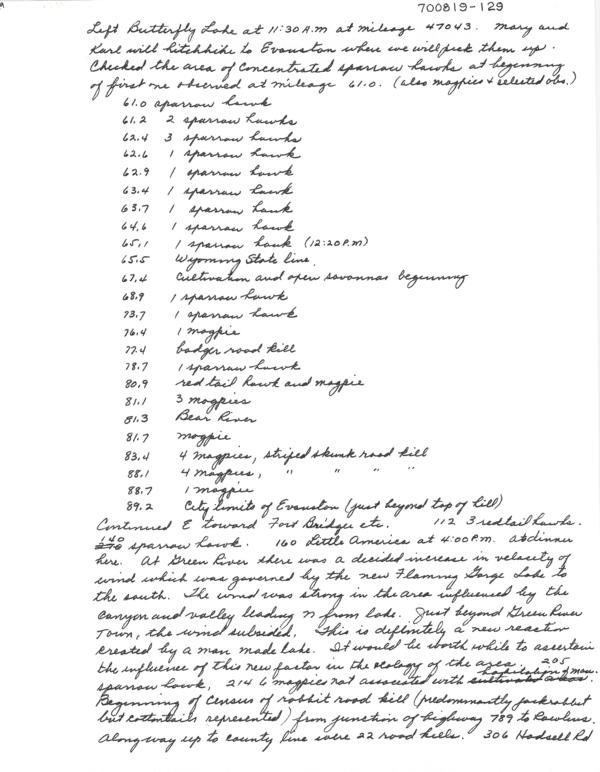 700819-129
Left Butterfly Lake at 11:30 A.M at mileage 47043. Mary and
Karl will hitchhike to Evanston where we will pick them up.
Checked the area of concentrated sparrow hawks at beginning
of first one observed at mileage 61.0. (also magpies + selected obs.)
61.0 sparrow hawk
61.2 2 sparrow hawks
62.4 3 sparrow hawks
62.6 1 sparrow hawk
62.9 1 sparrow hawk
63.4 1 sparrow hawk
63.7 1 sparrow hawk
64.6 1 sparrow hawk
65.1 1 sparrow hawk (12:20 P.M)
65.5 Wyoming State line.
67.4 Cultivation and open savannas beginning
68.9 1 sparrow hawk
73.7 1 sparrow hawk
76.4 1 magpie
77.4 badger road kill
78.7 1 sparrow hawk
80.9 red tail hawk and magpie
81.1 3 magpies
81.3 Bear River
81.7 magpie
83.4 4 magpies, striped skunk road kill
88.1 4 magpies, " " " "
88.7 1 magpie
89.2 City limits of Evanston (just beyond top of hill)
Continued E toward Fort Bridger etc. 112 3 redtail hawks.
140 sparrow hawk. 160 Little America at 4:00 P.M. ate dinner
here. At Green River there was a decided increase in velosity of
wind which was governed by the new Flaming Gorge Lake to
the south. The wind was strong in the area influenced by the
canyon and valley leading N from lake. Just beyond Green River
Town, the wind subsided. This is definitely a new reaction
created by a man made lake. It would be worth while to ascertain
the influence of this new factor in the ecology of the area. 205
sparrow hawk, 214 6 magpies not associated with habitation of man.
Beginning of census of rabbit road kill (predominantly jackrabbit
but cottontails represented) from junction of highway 789 to Rawlins.
Along way up to county line were 22 road kills. 306 Hadsell Rd